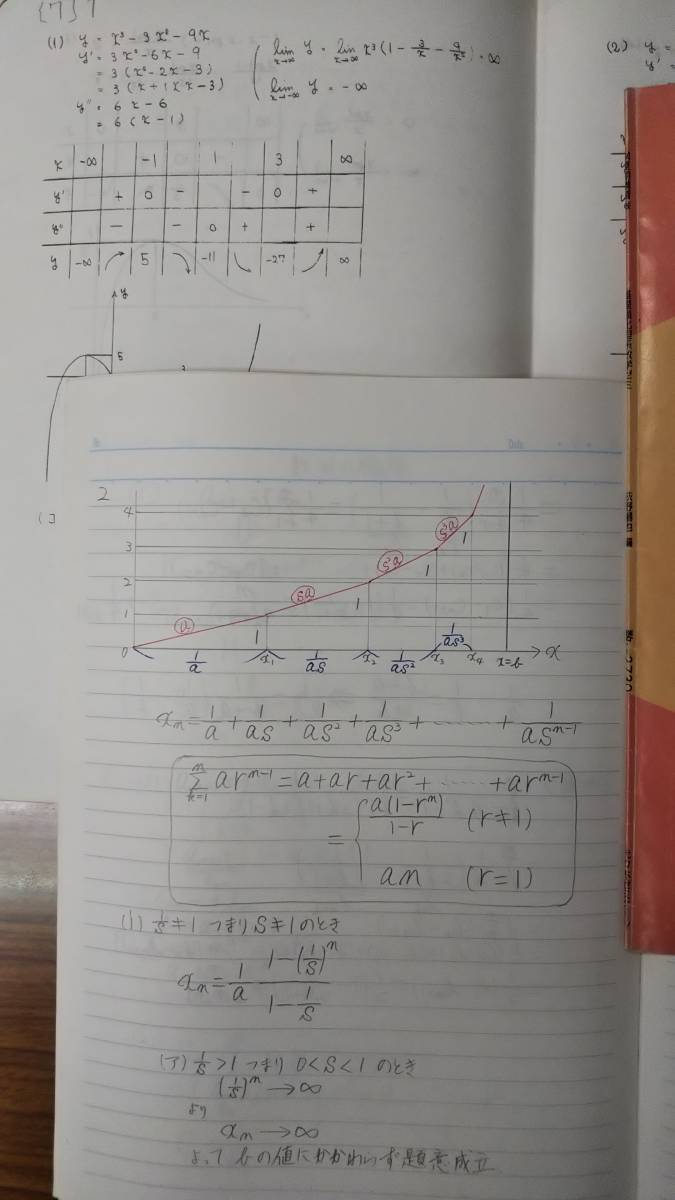 [7] 7
(1) y = x³ - 3x² - 9x
y' = 3x² - 6x - 9
= 3(x² - 2x - 3)
= 3(x + 1)(x - 3)
y'' = 6x - 6
= 6(x - 1)
lim x→∞ y = lim x→∞ x³(1 - 3/x - 9/x²) = ∞
lim x→-∞ y = -∞
(2) y =
y' =
x -∞ -1 1 3 ∞
y' + 0 - - 0 +
y'' - - 0 + +
y -∞ 5 -11 -27 ∞
y
5
No.
Date
2
4
3
2
1
0
a sa s²a s³a
1 1 1 1
1/a x₁ 1/as x₂ 1/as² x₃ 1/as³ x₄ x=b x
xₙ = 1/a + 1/as + 1/as² + 1/as³ + …… + 1/asⁿ⁻¹
n Σ k=1 arⁿ⁻¹ = a + ar + ar² + …… + arⁿ⁻¹
= { a(1-rⁿ)/1-r (r≠1)
an (r=1)
(i) 1/s ≠ 1 つまり S≠1のとき
xₙ = 1/a 1-(1/s)ⁿ/1-1/s
(ア) 1/s > 1 つまり 0<S<1 のとき
(1/s)ⁿ → ∞
より
xₙ → ∞
よって bの値にかかわらず題意成立